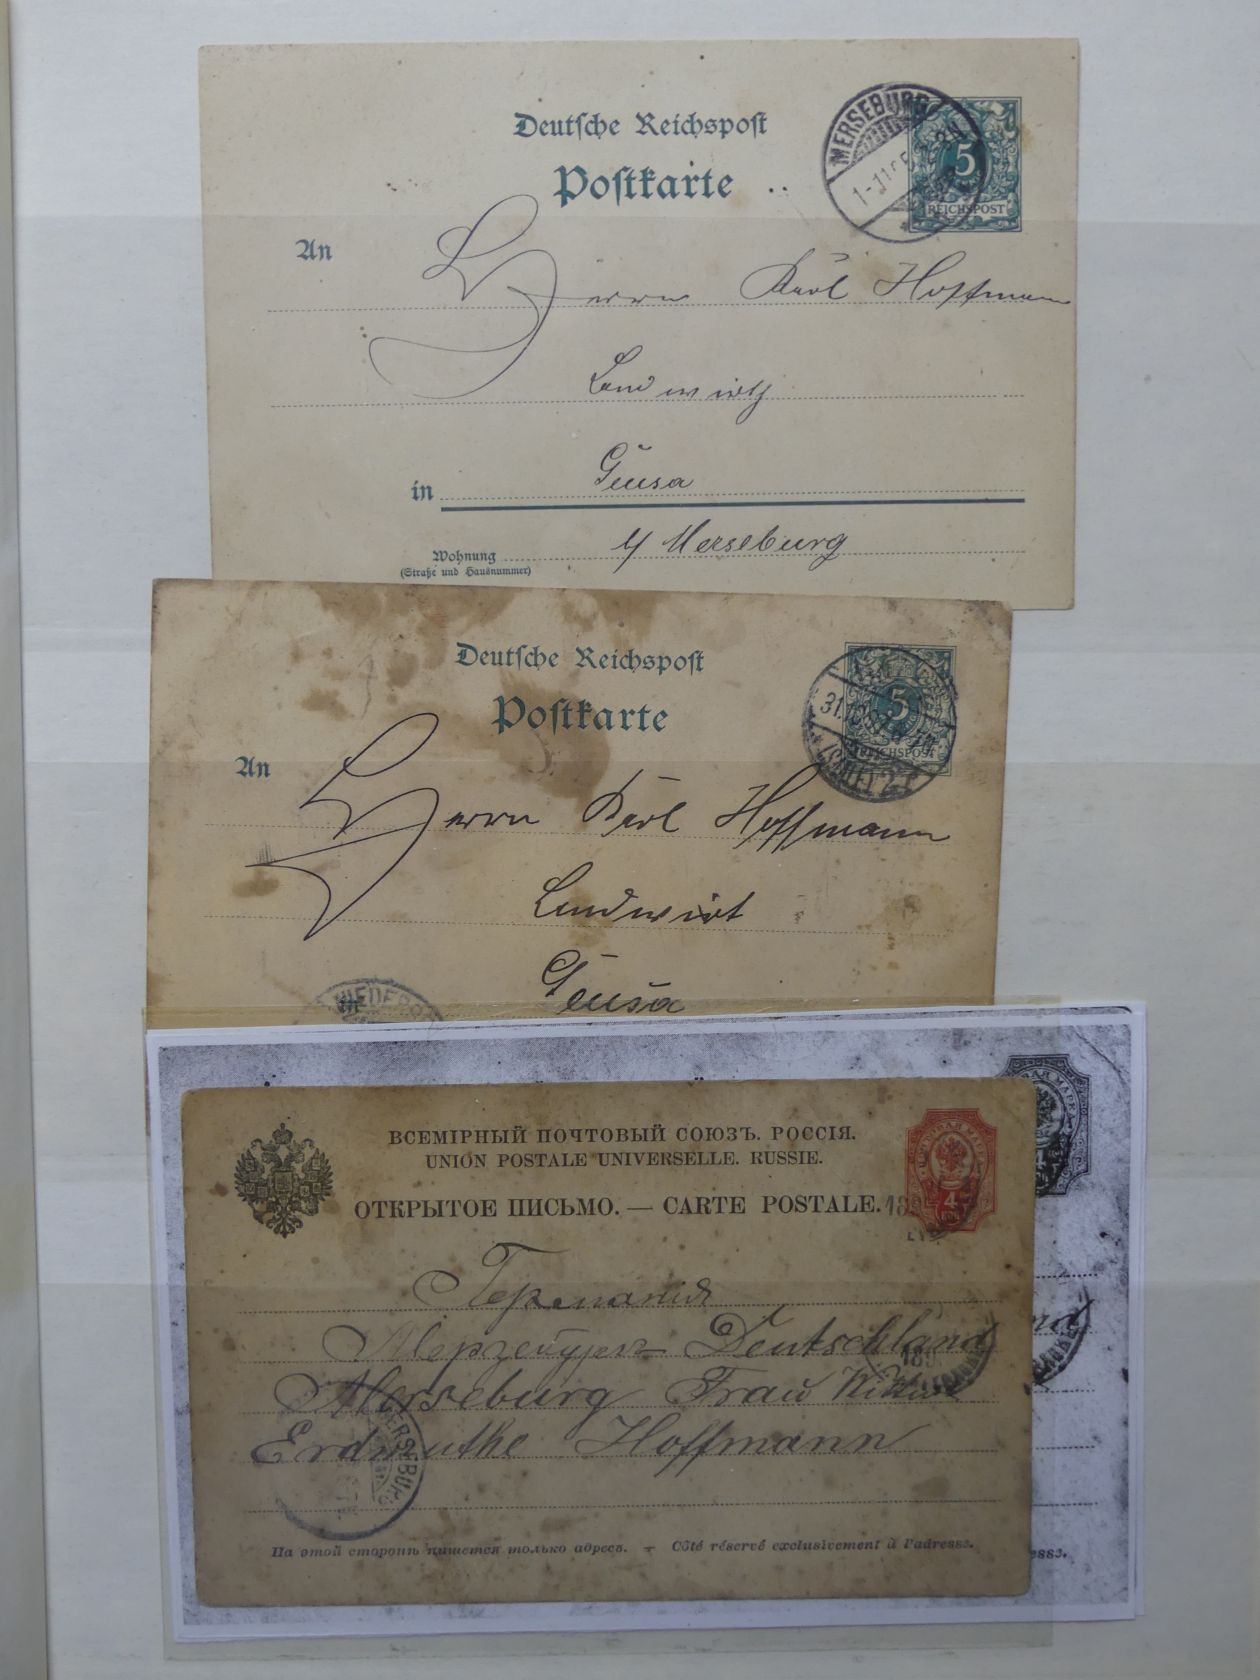 Deutsche Reichspost
Postkarte
MERSEBURG
5
REICHSPOST
An
Herrn Karl Hoffmann
Landwirth
in Geusa
b/ Merseburg
Wohnung
(Straße und Hausnummer)
Deutsche Reichspost
Postkarte
5
REICHSPOST
An
Herrn Karl Hoffmann
Landwirt
Geusa
ВСЕМІРНЫЙ ПОЧТОВЫЙ СОЮЗЪ. РОССІЯ.
UNION POSTALE UNIVERSELLE. RUSSIE.
ОТКРЫТОЕ ПИСЬМО. — CARTE POSTALE.
4
Германія
Deutschland
Merseburg Frau Wittwe
Erdmuthe Hoffmann
MERSEBURG
На этой сторонѣ пишется только адресъ. — Côté réservé exclusivement à l'adresse.